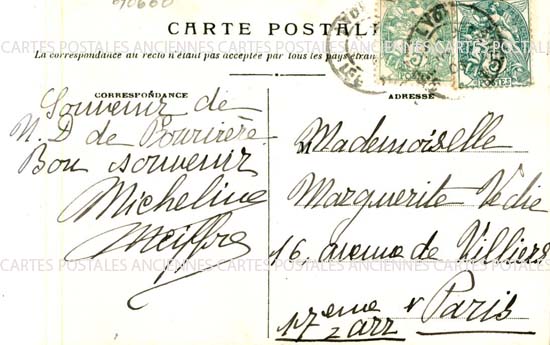 90600
CARTE POSTALE
La correspondance au recto n'étant pas acceptée par tous les pays étran
CORRESPONDANCE
Souvenir de
N. D de Fourvière
Bon souvenir
Micheline
Meiffre
ADRESSE
Mademoiselle
Marguerite Vedie
16, avenue de Villiers
17eme arr Paris
LYON
POSTES
CARTES POSTALES ANCIENNES CARTES POSTALES ANCIENNES CARTES POSTALES ANCIENNES
CARTES POSTALES ANCIENNES CARTES POSTALES ANCIENNES CARTES POSTALES ANCIENNES